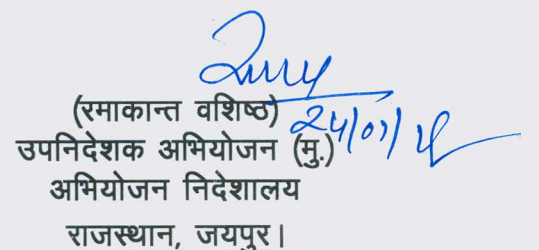 (रमाकान्त वशिष्ठ)
उपनिदेशक अभियोजन (मु.)
अभियोजन निदेशालय
राजस्थान, जयपुर।